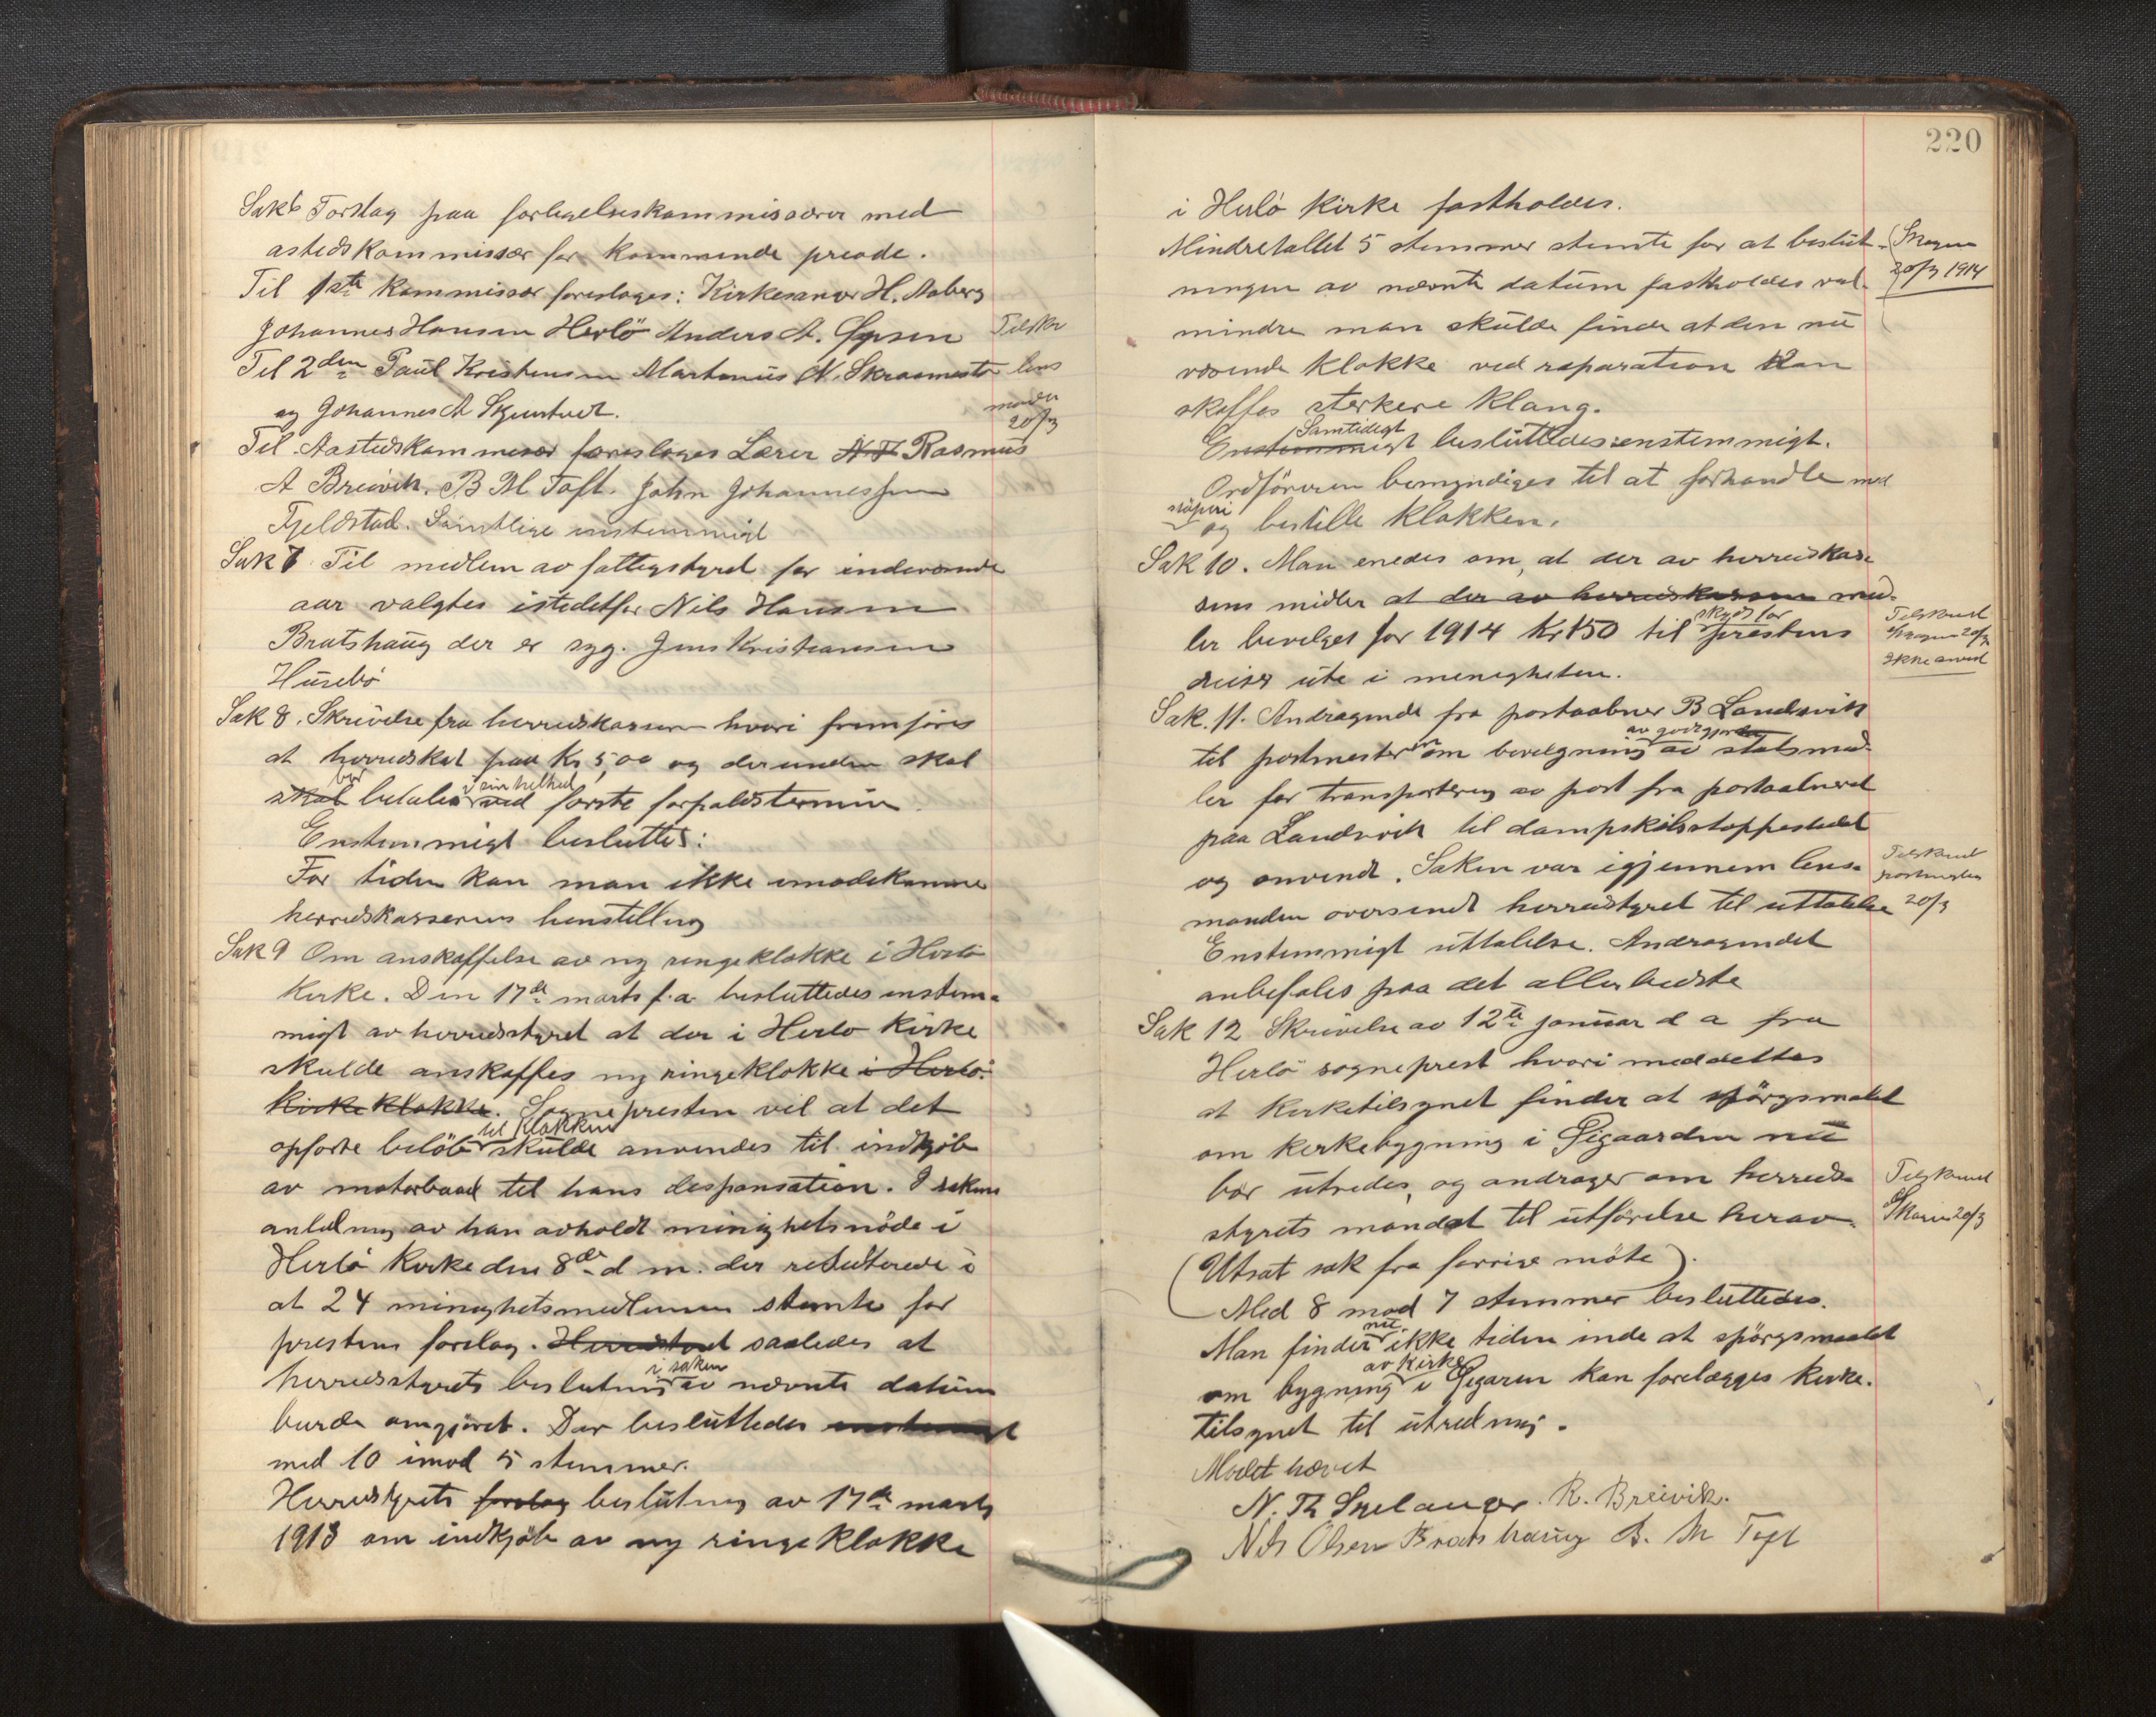 Sak 6 Forslag paa forligelseskommissærer med
astedskommissær for kommende preode.
Til 1ste kommissær foreslages: Kirkesanger H. Aaberg
Johannes Hansen Herlö Anders A.
Tilskr
Til 2den Paul Kristensen Martinus N. Skraamesto
lens
og Johannes A Skjurtvet.
manden
20/3
Til Aastedskommesær foreslages Lærer N T Rasmus
A Breivik. B M Toft. John Johannessen
Fjeldstad. Samtlige enstemmigt
Sak 7 Til medlem av fattigstyret for indeværende
aar valgtes istedetfor Nils Hansen
Bratshaug der er syg. Jens Kristiansen
Husebö
Sak 8. Skrivelse fra herredskassern hvori fremföres
at herredskat paa Kr 5,00 og derunder skal
bör i sin helhed
skal betales ved første forfaldstermin.
Enstemmigt besluttes:
For tiden kan man ikke imødekomme
herredskasserens henstilling
Sak 9 Om anskaffelse av ny ringeklokke i Herlö
Kirke. Den 17de marts f.a. besluttedes enstem-
migt av herredsstyret at der i Herlo Kirke
skulde anskaffes ny ringeklokke i Herlö
Kirke klokke. Sognepresten vil at det
til klokken
opførte belöb skulde anvendes til indkjöb
av motorbaad til hans desponsation. I sakens
anledning av han avholdt minighetsmöde i
Herlö Kirke den 8de d m. der resulterede i
at 24 minighetsmedlemmer stemte for
prestens forslag. Herredstyret saaledes at
i saken
herredsstyrets beslutning av nævnte datum
burde omgjöret. Der besluttedes enstemmigt
med 10 imod 5 stemmer.
Herredstyrets forslag beslutning av 17de marts
1913 om indkjöb av ny ringeklokke
220
i Herlö Kirke fastholdes.
Mindretallet 5 stemmer stemte for at beslut-
ningen av nævnte datum fastholdes ved-
20/3 1914
mindre man skulde finde at den nu
værende klokke ved reparation kan
skaffes sterkere klang.
Samtidigt
Enstemmigt besluttedes enstemmigt.
Ordföreren bemyndiges til at forhandle med
og bestille klokken.
Sak 10. Man enedes om, at der av herredskas-
sens midler at der av herredskassen mid-
skyds for
ler bevilges for 1914 Kr 150 til prestens
Tilskrevet
20/3
Ikke anvist
reiser ute i menigheten.
Sak. 11. Andragende fra postaabner B Landsvik
av godtgjörelse
til postmesteren om bevilgning av statsmid-
ler for transportering av post fra postaabneriet
paa Landsvik til dampskibsstoppestedet
og omvendt. Saken var igjennem lens-
Tilskrevet
postmesteren
manden oversendt herredstyret til uttalelse
20/3
Enstemmigt uttalelse. Andragendet
anbefales paa det allerbedste
Sak 12 Skrivelse av 12te januar d a fra
Herlö sogneprest hvori meddeltes
at Kirketilsynet finder at spörgsmalet
om kirkebygning i Øigaarden nu
bör utredes, og andrager om herreds-
Tilskrevet
styrets mandat til utförelse herav.
20/3
(Utsat sak fra forrige möte).
Med 8 mod 7 stemmer besluttedes.
nu
Man finder ikke tiden inde at spörgsmaalet
av kirke
om bygning i Øigaren kan forelægges Kirke-
tilsynet til utredning.
Mödet hævet
N. Th R. Breivik.
Nils Olsen Bratshaug B. M Toft